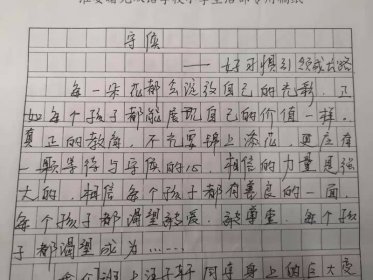 守候
——好习惯引领成长路
每一朵花都会绽放自己的光彩，正
如每个孩子都能展现自己的价值一样。
真正的教育，不只要锦上添花，更应有
一颗等待与守候的心，相信的力量是强
大的，相信每个孩子都有善良的一面，
每个孩子都渴望被爱、被尊重，每个孩
子都渴望成为……